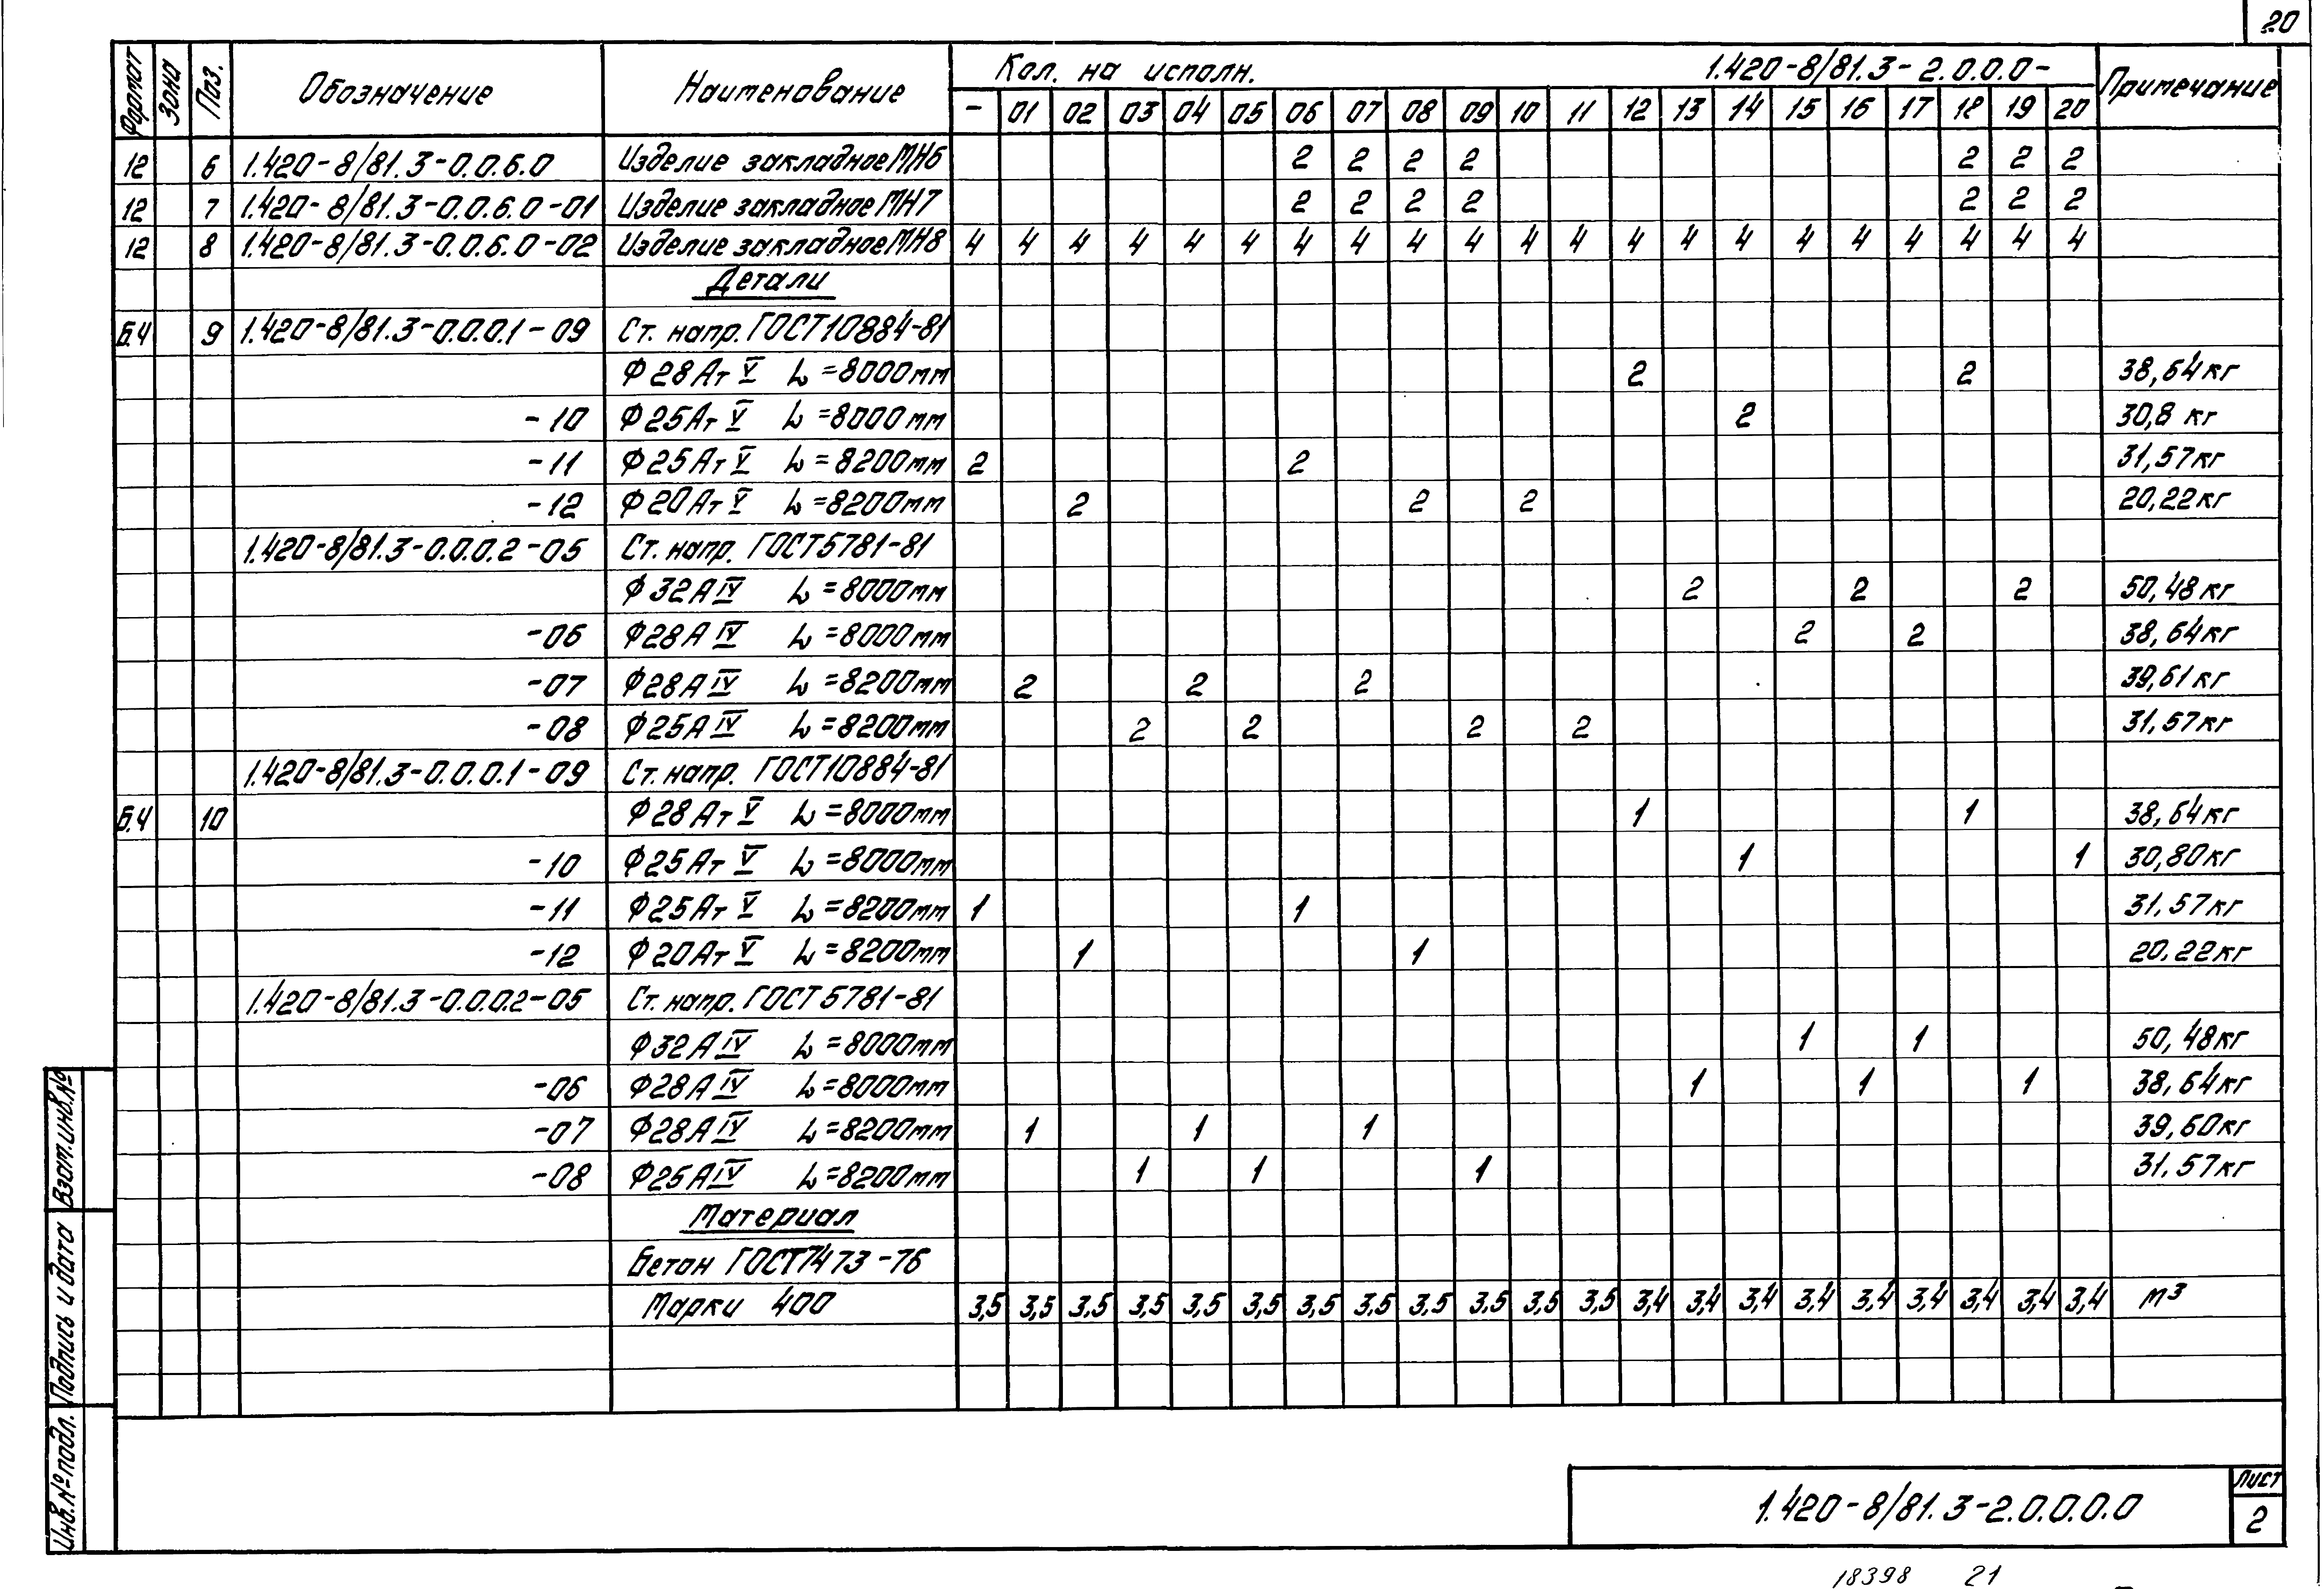 20
Формат Зона Поз. Обозначение Наименование Кол. на исполн. 1.420-8/81.3-2.0.0.0- Примечание
- 01 02 03 04 05 06 07 08 09 10 11 12 13 14 15 16 17 18 19 20
12 6 1.420-8/81.3-0.0.6.0 Изделие закладное МН6 2 2 2 2 2 2 2
12 7 1.420-8/81.3-0.0.6.0-01 Изделие закладное МН7 2 2 2 2 2 2 2
12 8 1.420-8/81.3-0.0.6.0-02 Изделие закладное МН8 4 4 4 4 4 4 4 4 4 4 4 4 4 4 4 4 4 4 4 4 4
Детали
Б.Ч 9 1.420-8/81.3-0.0.0.1-09 Ст. напр. ГОСТ10884-81
Ф28Ат V L=8000мм 2 2 38,64кг
-10 Ф25Ат V L=8000мм 2 30,8 кг
-11 Ф25Ат V L=8200мм 2 2 31,57кг
-12 Ф20Ат V L=8200мм 2 2 2 20,22кг
1.420-8/81.3-0.0.0.2-05 Ст. напр. ГОСТ5781-81
Ф32А IV L=8000мм 2 2 2 50,48кг
-06 Ф28А IV L=8000мм 2 2 38,64кг
-07 Ф28А IV L=8200мм 2 2 2 39,61кг
-08 Ф25А IV L=8200мм 2 2 2 2 31,57кг
1.420-8/81.3-0.0.0.1-09 Ст. напр. ГОСТ10884-81
Б.Ч 10 Ф28Ат V L=8000мм 1 1 38,64кг
-10 Ф25Ат V L=8000мм 1 1 30,80кг
-11 Ф25Ат V L=8200мм 1 1 31,57кг
-12 Ф20Ат V L=8200мм 1 1 20,22кг
1.420-8/81.3-0.0.0.2-05 Ст. напр. ГОСТ5781-81
Ф32А IV L=8000мм 1 1 50,48кг
-06 Ф28А IV L=8000мм 1 1 1 38,64кг
-07 Ф28А IV L=8200мм 1 1 1 39,60кг
-08 Ф25А IV L=8200мм 1 1 1 31,57кг
Материал
Бетон ГОСТ7473-76
Марки 400 3,5 3,5 3,5 3,5 3,5 3,5 3,5 3,5 3,5 3,5 3,5 3,5 3,4 3,4 3,4 3,4 3,4 3,4 3,4 3,4 3,4 м³
Инв.№подл. Подпись и дата Взам.инв.№
1.420-8/81.3-2.0.0.0.0
Лист
2
18398 21